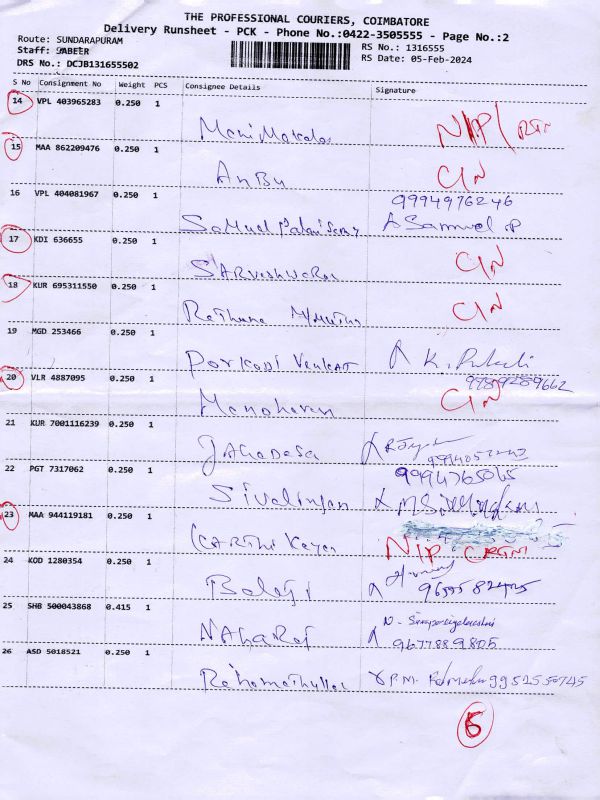 THE PROFESSIONAL COURIERS, COIMBATORE
Delivery Runsheet - PCK - Phone No.:0422-3505555 - Page No.:2
Route: SUNDARAPURAM
Staff: SABEER
DRS No.: DCJB131655502
RS No.: 1316555
RS Date: 05-Feb-2024
S No Consignment No Weight PCS Consignee Details Signature
14 VPL 403965283 0.250 1
NIP/
15 MAA 862209476 0.250 1
Anbu C/N
16 VPL 404081967 0.250 1
9994976246
Samuel Samuel .P
17 KDI 636655 0.250 1
Sarveshwaran C/N
18 KUR 695311550 0.250 1
Rathuna C/N
19 MGD 253466 0.250 1
Porkodi Venkat K.
20 VLR 4887095 0.250 1
9789289662
Manoharan C/N
21 KUR 7001116239 0.250 1
Jagadesa
22 PGT 7317062 0.250 1
Sivalingam
23 MAA 944119181 0.250 1
Karthikeyan NIP
24 KOD 1280354 0.250 1
Balaji
25 SHB 500043868 0.415 1
N.
Nagaraj 9677889805
26 ASD 5018521 0.250 1
Rahamathullah P.M.
6